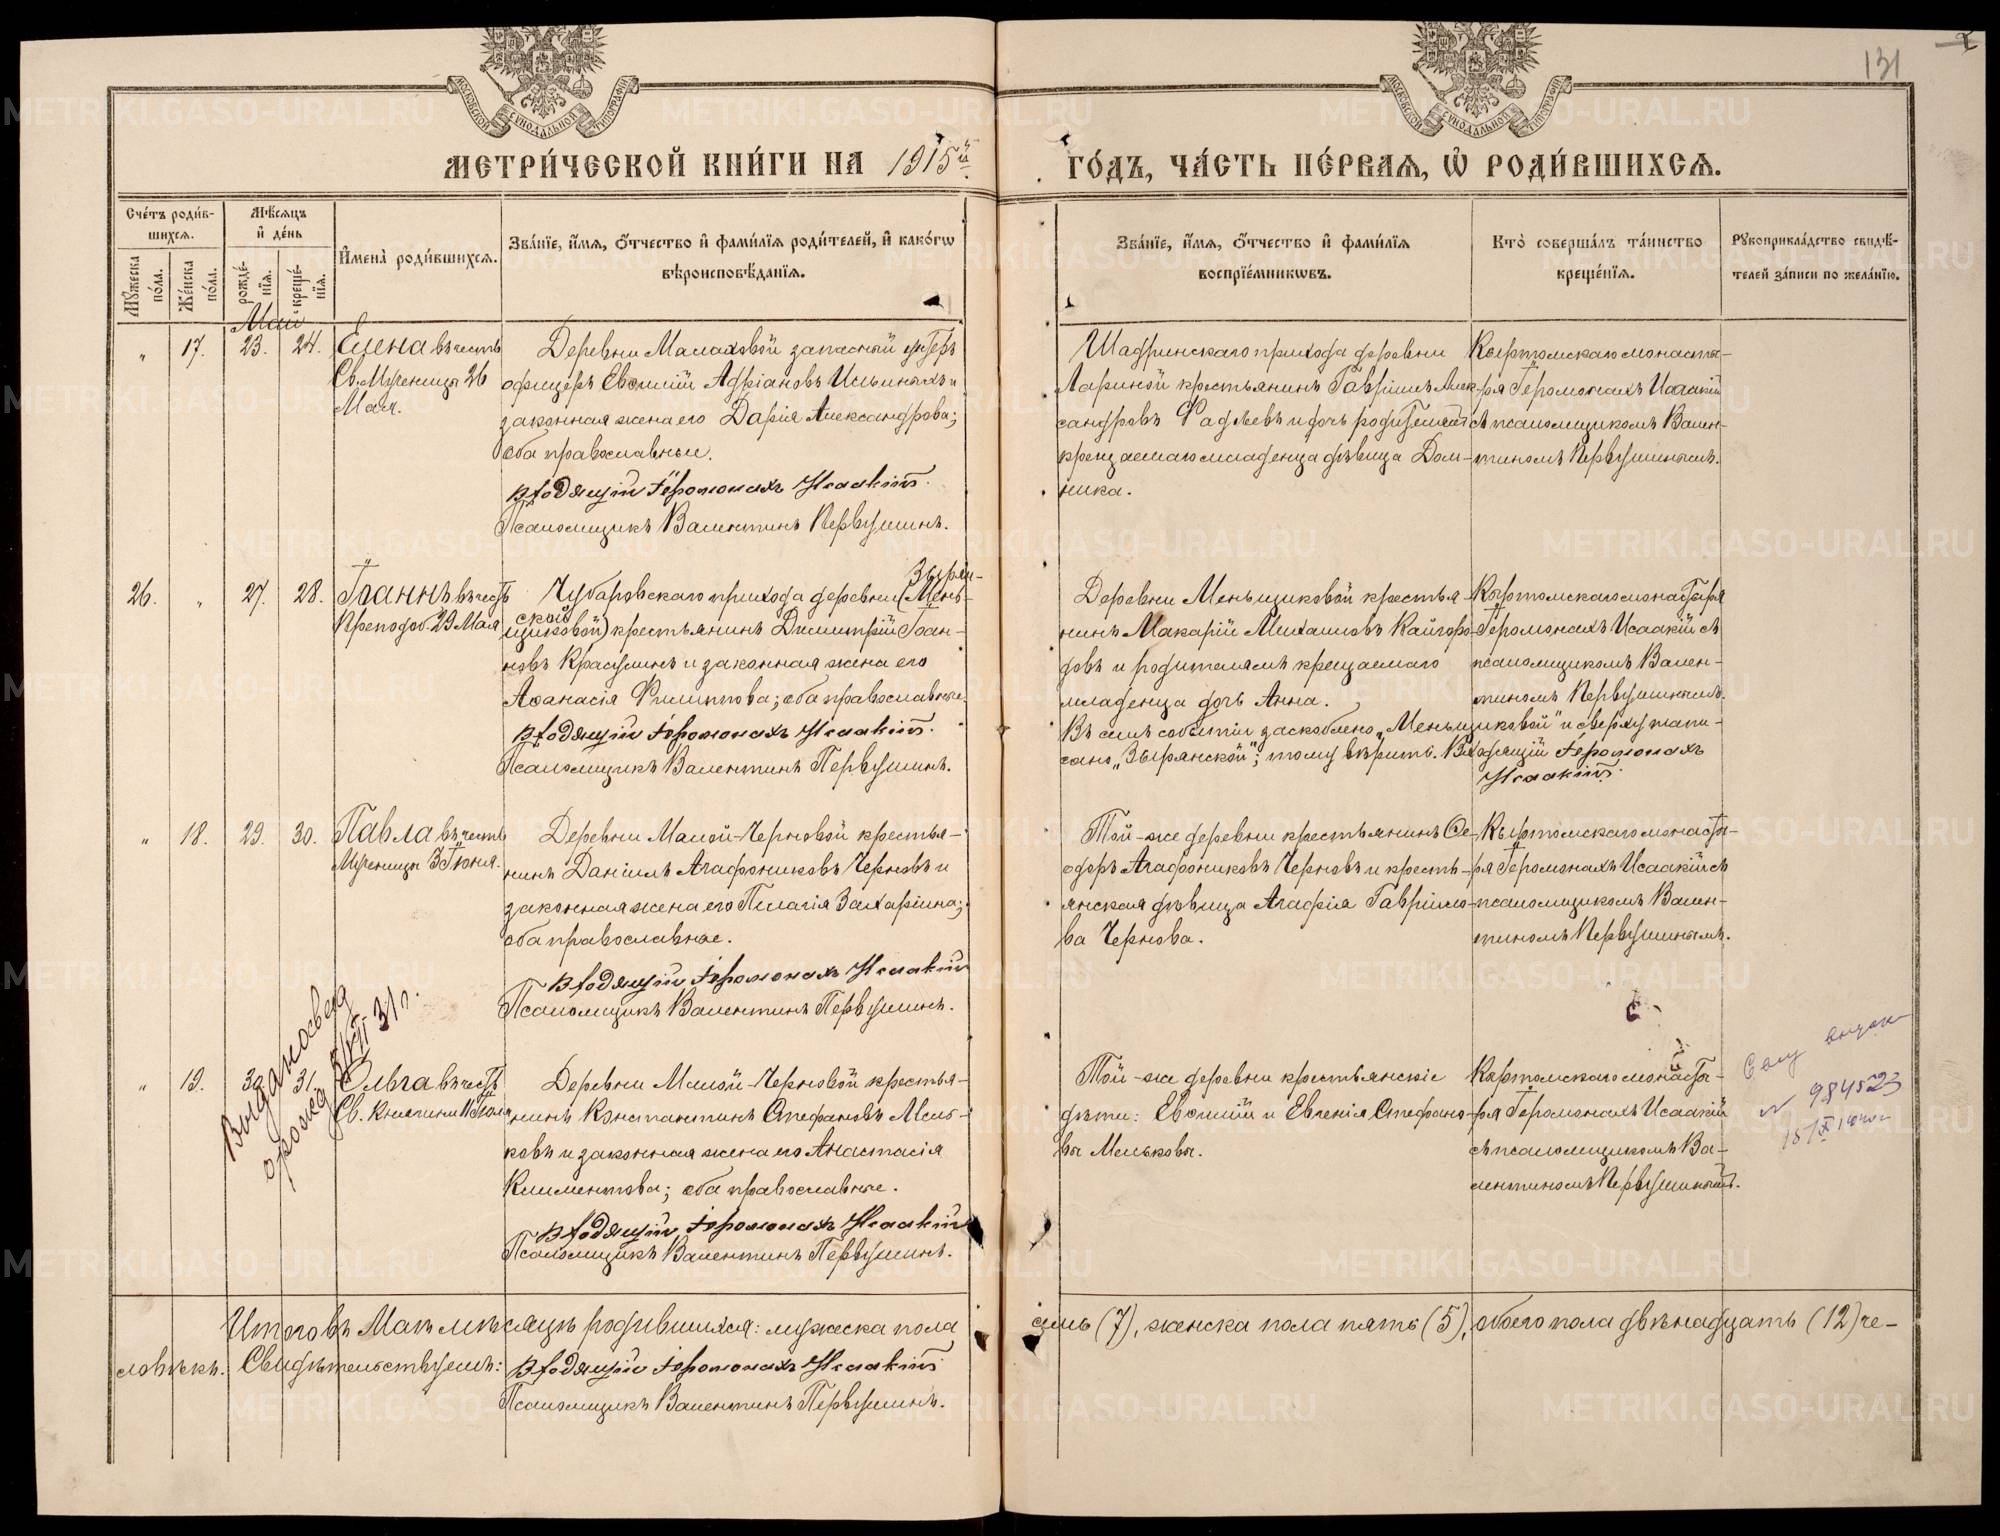 131
МОСКОВСКОЙ СУНОДАЛЬНОЙ ТИПОГРАФІИ
МОСКОВСКОЙ СУНОДАЛЬНОЙ ТИПОГРАФІИ
МЕТРИ́ЧЕСКОЙ КНИ́ГИ НА 1915й
ГО́ДЪ, ЧА́СТЬ ПЕ́РВАѦ, Ѽ РОДИ́ВШИХСѦ.
Сче́тъ роди́вшихсѧ.
Мѣ́сѧцъ и҆ де́нь
И҆мена̀ роди́вшихсѧ.
Зва́нїе, и҆́мѧ, ѻ҆́тчество и҆ фами́лїѧ роди́телей, и҆ како́гѡ
вѣроисповѣ́данїѧ.
Зва́нїе, и҆́мѧ, ѻ҆́тчество и҆ фами́лїѧ
воспрїе́мникѡвъ.
Кто̀ соверша́лъ та́инство
креще́нїѧ.
Рꙋкоприкла́дство свидѣ́-
телей за́писи по жела́нїю.
Мꙋ́жеска по́ла.
Же́нска по́ла.
рожде́нїѧ.
креще́нїѧ.
Маи
„ 17. 23. 24.
Елена въ честь
Св. Мученицы 26
Мая.
Деревни Малаховой запасный унтеръ
офицеръ Евѳимій Адріановъ Ильиныхъ и
законная жена его Дарія Александрова;
оба православные.
Входящій Іеромонахъ Исаакій.
Псаломщикъ Валентинъ Первушинъ.
Шадринскаго прихода деревни
Лариной крестьянинъ Гавріилъ Алек-
сандровъ Фадѣевъ и дочь родителей
крещаемаго младенца дѣвица Дом-
ника.
Кыртомскаго монасты-
ря Іеромонахъ Исаакій
съ псаломщикомъ Вален-
тиномъ Первушинымъ.
26. „ 27. 28.
Іоаннъ въ честь
Преподоб. 29 Мая
Чубаровскаго прихода деревни (Мень- Зырян-
щиковой) ской крестьянинъ Димитрій Іоан-
новъ Красулинъ и законная жена его
Аѳанасія Филиппова; оба православные.
Входящій Іеромонахъ Исаакій.
Псаломщикъ Валентинъ Первушинъ.
Деревни Меньщиковой крестья-
нинъ Макарій Михаиловъ Кайгоро-
довъ и родителямъ крещаемаго
младенца дочь Анна.
Въ семъ событіи заскоблено „Меньщиковой“ и сверху напи-
сано „Зырянской“; тому вѣрить. Входящій Іеромонахъ
Исаакій.
Кыртомскаго монастыря
Іеромонахъ Исаакій съ
псаломщикомъ Вален-
тиномъ Первушинымъ.
„ 18. 29. 30.
Павла въ честь
Мученицы 3 Іюня.
Деревни Малой-Черновой крестья-
нинъ Даніилъ Агафониковъ Черновъ и
законная жена его Пелагія Захаріина;
оба православные.
Входящій Іеромонахъ Исаакій
Псаломщикъ Валентинъ Первушинъ.
Той-же деревни крестьянинъ Ѳе-
одоръ Агафониковъ Черновъ и кресть-
янская дѣвица Агафія Гавріило-
ва Чернова.
Кыртомскаго монасты-
ря Іеромонахъ Исаакій съ
псаломщикомъ Вален-
тиномъ Первушинымъ.
Выдано свед
о рожд
31 г.
„ 19. 30. 31.
Ольга въ честь
Св. Княгини 11 Іюля
Деревни Малой-Черновой крестья-
нинъ Константинъ Стефановъ Мель-
ковъ и законная жена его Анастасія
Климентова; оба православные.
Входящій Іеромонахъ Исаакій
Псаломщикъ Валентинъ Первушинъ.
Той-же деревни крестьянскіе
дѣти: Евѳимій и Евгенія Стефано-
вы Мельковы.
Кыртомскаго монасты-
ря Іеромонахъ Исаакій
съ псаломщикомъ Ва-
лентиномъ Первушинымъ.
№ 984523
Итого въ Маѣ мѣсяцѣ родившихся: мужеска пола семь (7), женска пола пять (5), обоего пола двѣнадцать (12) че-
ловѣкъ. Свидѣтельствуемъ: Входящій Іеромонахъ Исаакій
Псаломщикъ Валентинъ Первушинъ.
METRIKI.GASO-URAL.RU